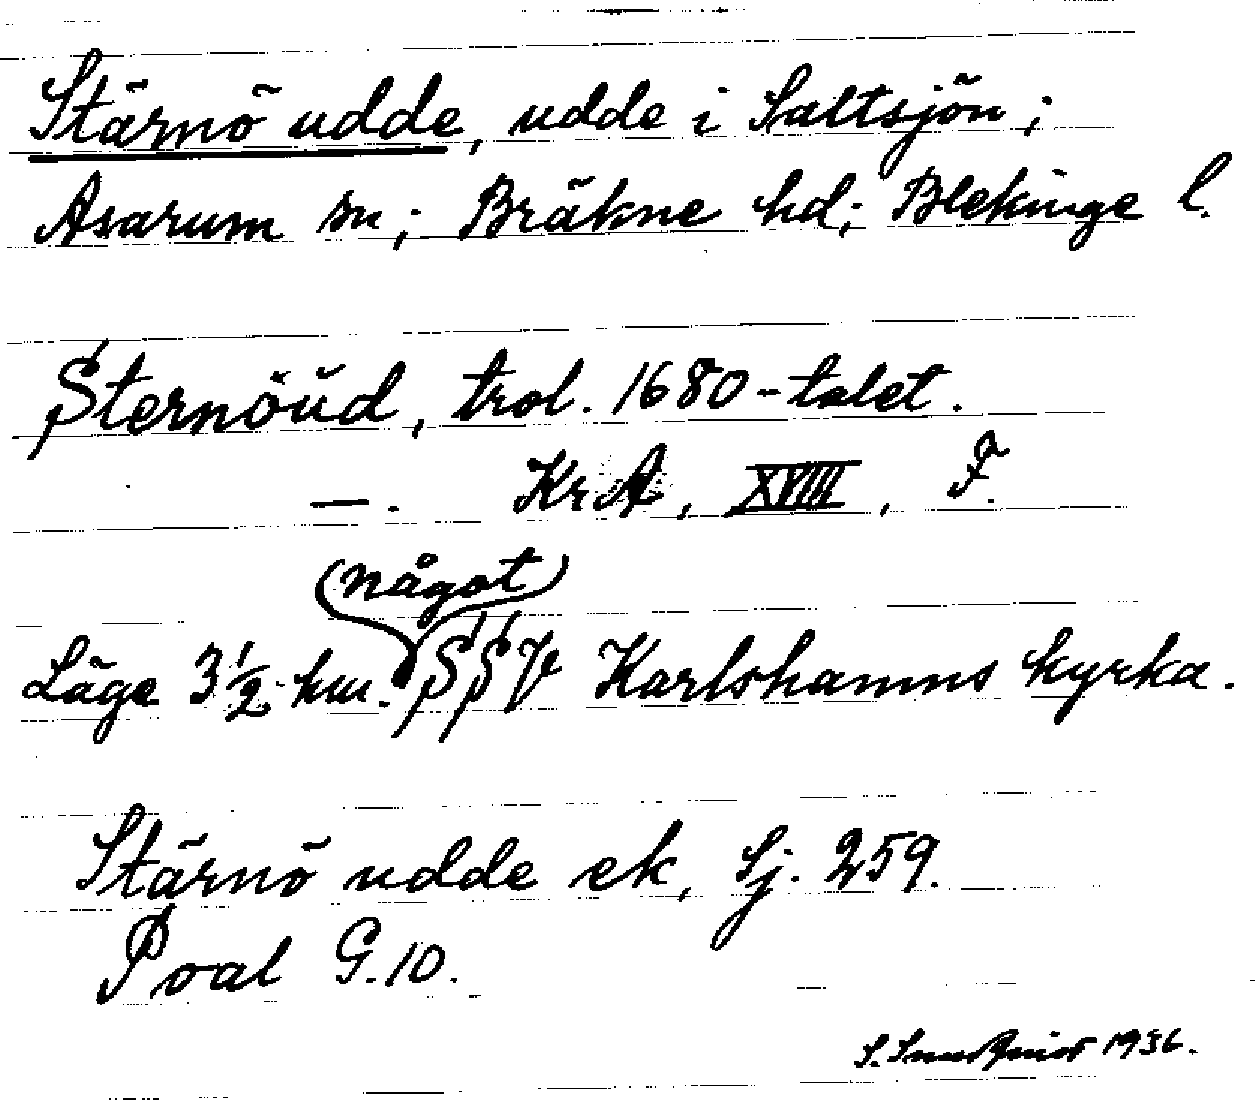 Stärnö udde, udde i Saltsjön;
Asarum sn; Bräkne hd; Blekinge l.
Sternöŭd, trol. 1680-talet.
—. KrA, XVIII, F.
(något)
Läge 3½ km. SSV Karlshamns kyrka.
Stärnö udde ek, Sj. 259.
Pval G.10.
S. 1936.